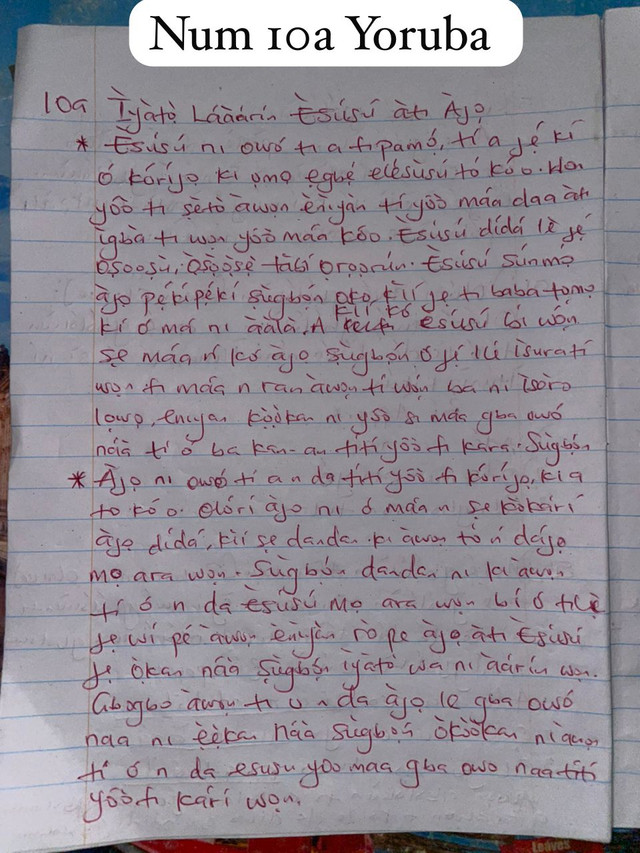 Num 10a Yoruba
10a Ìyàtọ̀ Láàárín Èsúsú àti Àjọ
* Èsúsú ni owó tí a tipamọ́, tí a jẹ́ kí
ó kóríjọ kí ọmọ ẹgbẹ́ elésùsú tó kó o. Wọn
yóò ti sètò àwọn ènìyàn tí yóò máa daa àti
ìgbà tí won yóò máa kóo. Èsúsú dídá lè jẹ́
Oṣooṣù, Ọ̀sọ̀ọ̀sẹ̀ tàbí ọrọọrún. Èsúsú súnmọ
àjọ pẹ́kípẹ́kí ṣùgbọ́n ọkọ kìí jẹ ti baba tọmọ
kí ó má ni ààlà. A kìí kó èsúsú bí wọ́n
ṣe máa ń kó àjọ ṣùgbọ́n ó jẹ́ ìsura tí
won fi máa n ran àwọn tí wọ́n ba ni ìṣòro
lọwọ, ènìyan kọ̀ọ̀kan ni yóò si máa gba owó
náà tí ó ba kan-an títí yóò fi kárá. Ṣùgbọ́n
* Àjọ ni owó tí a n da títí yóò fi kóríjọ, kí a
to kó o. Olórí àjọ ni ó máa n ṣe kòkárí
àjọ dídá, kìí ṣe dandan kí àwọn tó ń dájọ
mọ ara wọn. Ṣùgbọ́n dandan ni kí àwọn
tí ó n dá èsúsú mọ ara wọn bí ó tilẹ̀
jẹ wí pé àwọn ènìyàn rò pe àjọ àti Èsúsú
jẹ ọ̀kan náà ṣùgbọ́n ìyàtọ̀ wa ni àárín wọn.
Gbogbo àwọn tí ó n da àjọ le gba owó
naa ni ẹ̀ẹ̀kan náà ṣùgbọ́n ọ̀kọ̀ọ̀kan ni àwọn
tí ó n da esusu yoo maa gba owo naa títí
yóò fi kárí wọn.